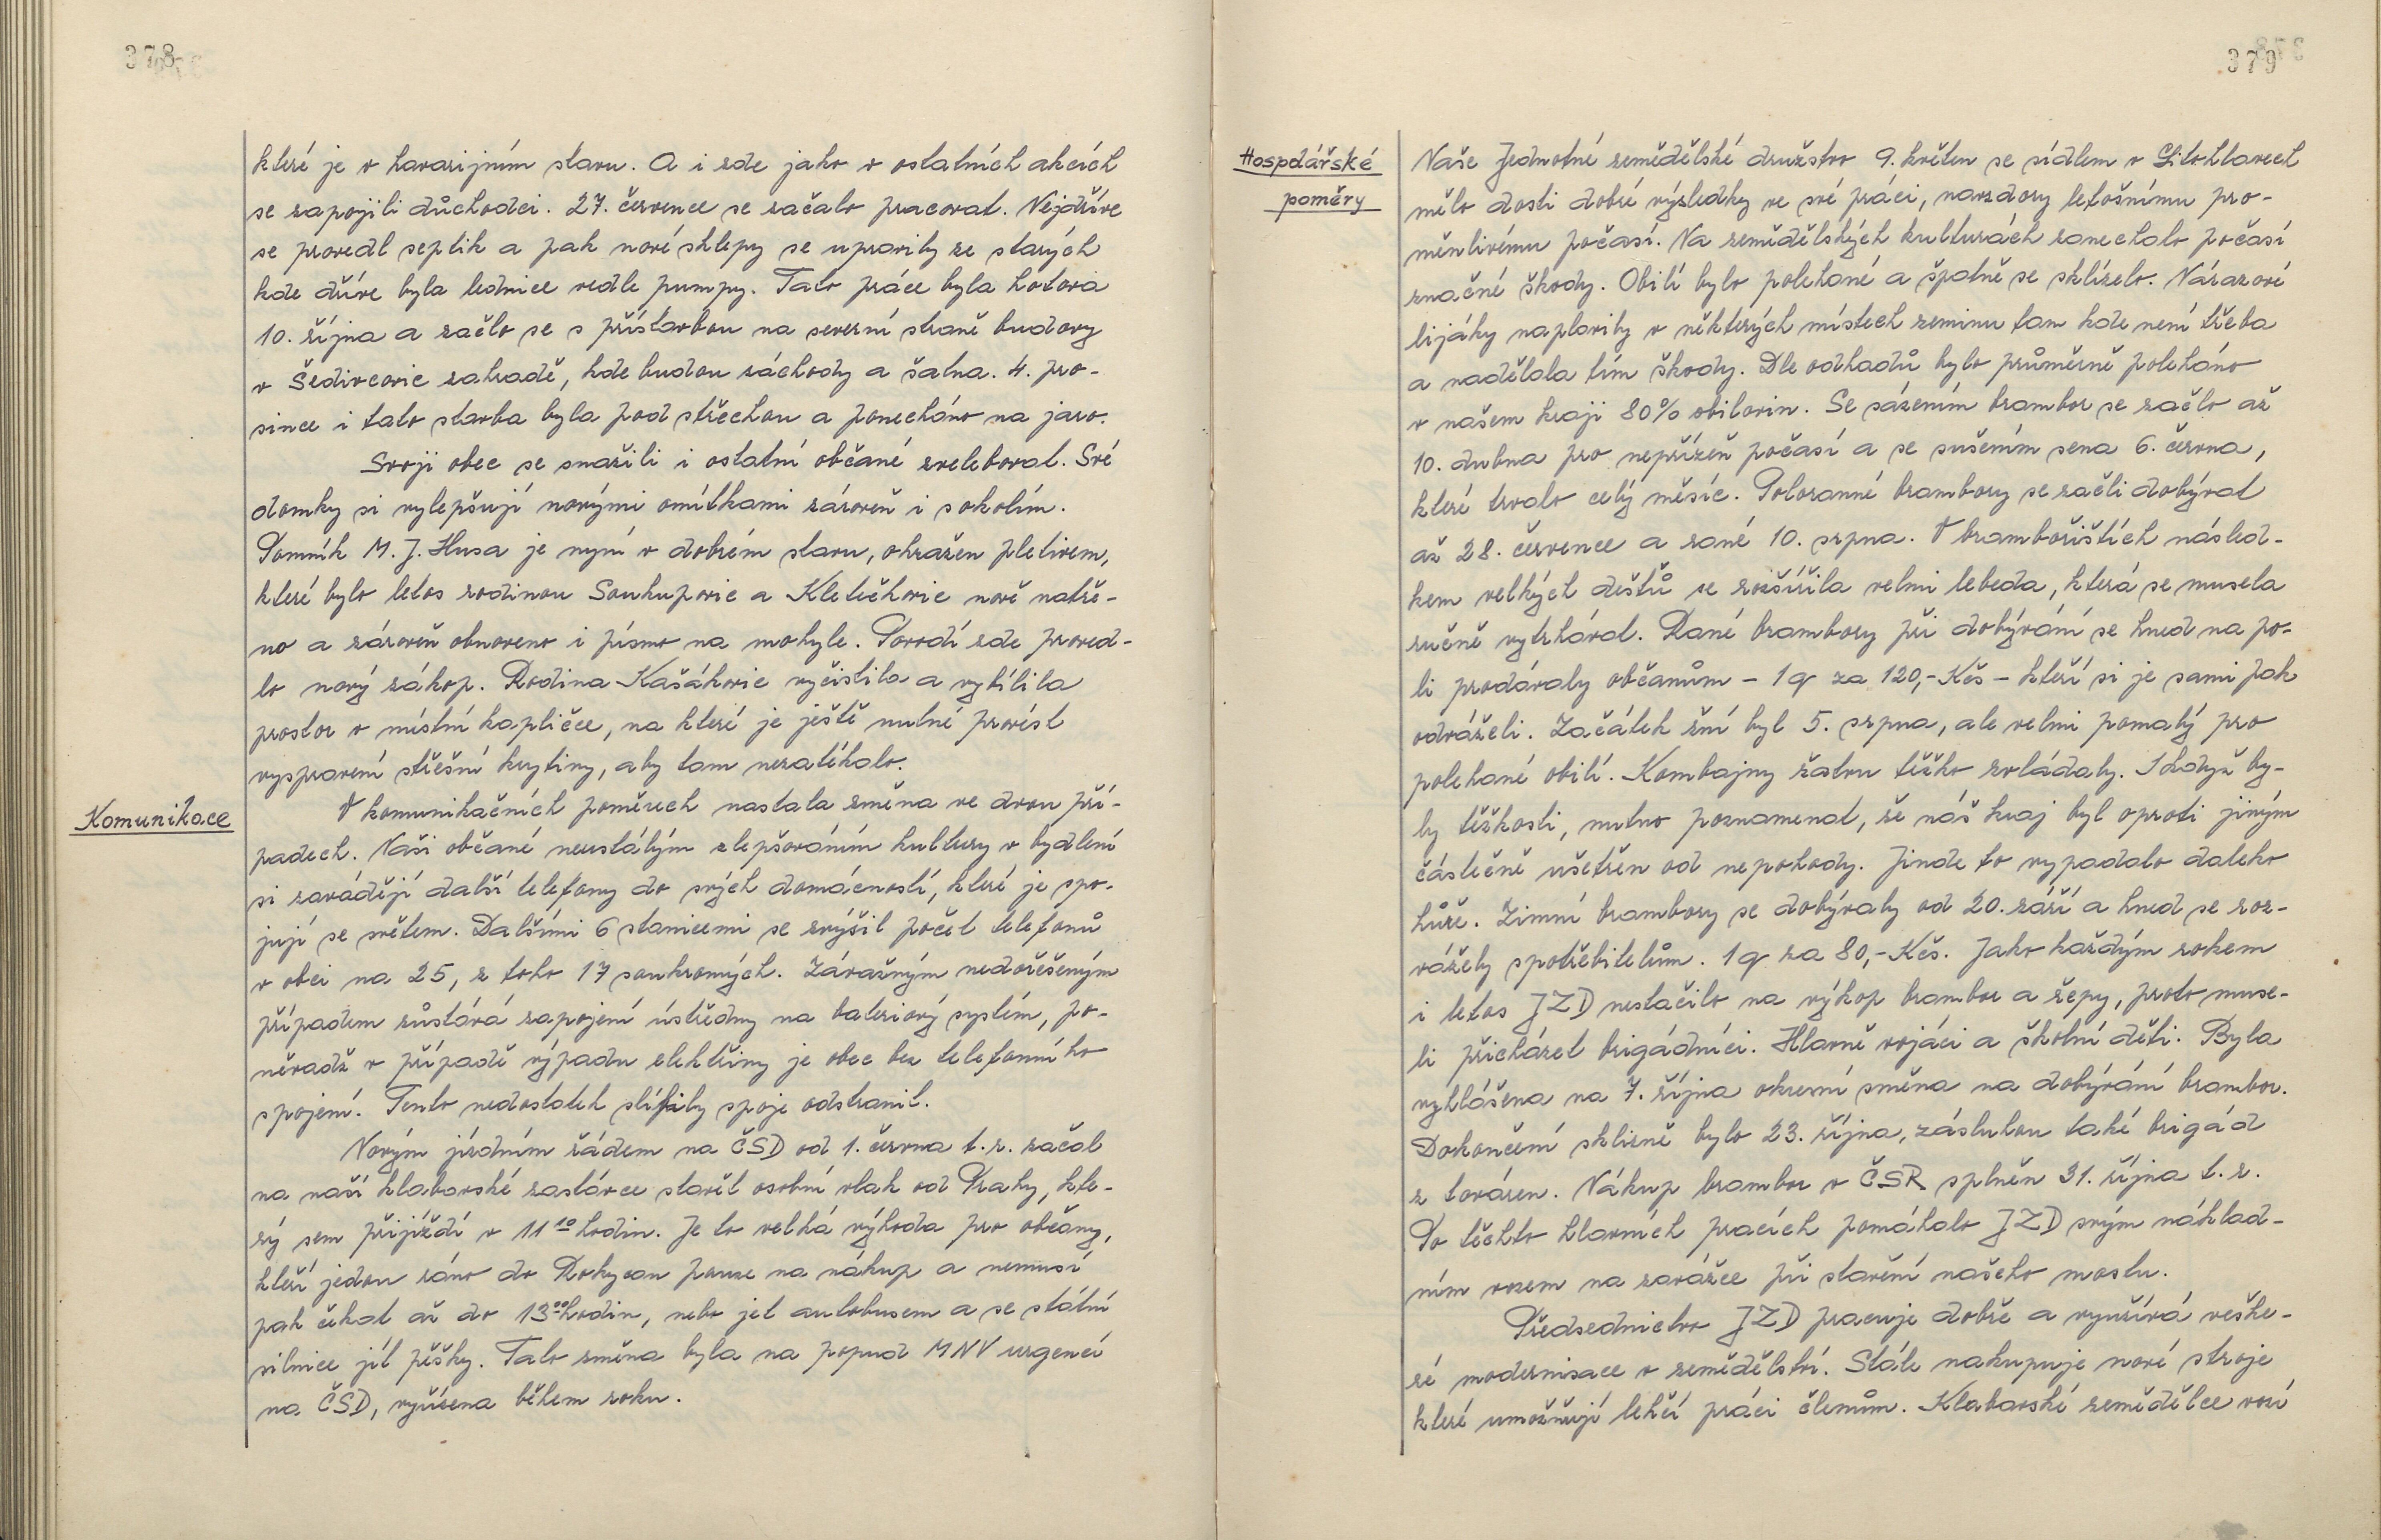 378
které je v havarijním stavu. A i zde jako v ostatních akcích
se zapojili důchodci. 27. července se začalo pracovat. Nejdříve
se provedl septik a pak nové sklepy se upravily ze starých
kde dříve byla lednice vedle pumpy. Tato práce byla hotova
10. října a začlo se s přístavbou na severní straně budovy
v Šedivcovic zahradě, kde budou záchody a šatna. 4. pro-
since i tato stavba byla pod střechou a ponecháno na jaro.
Svoji obec se snažili i ostatní občané zvelebovat. Své
domky si vylepšují novými omítkami zároveň i s okolím.
Pomník M. J. Husa je nyní v dobrém stavu, ohražen pletivem,
které bylo letos rodinou Soukupovic a Kletečkovic nově natře-
no a zároveň obnoveno i písmo na mohyle. Povodí zde proved-
lo nový zákop. Rodina Kašákovic vyčistila a vybílila
prostor v místní kapličce, na které je ještě nutné provést
vyspravení střešní krytiny, aby tam nezatékalo.
Komunikace
V komunikačních poměrech nastala změna ve dvou pří-
padech. Naši občané neustálým zlepšováním kultury v bydlení
si zavádějí další telefony do svých domácností, které je spo-
jují se světem. Dalšími 6 stanicemi se zvýšil počet telefonů
v obci na 25, z toho 17 soukromých. Závažným nedořešeným
případem zůstává zapojení ústředny na bateriový systém, po-
něvadž v případě výpadu elektřiny je obec bez telefonního
spojení. Tento nedostatek slíbily spoje odstranit.
Novým jízdním řádem na ČSD od 1. června t.r. začal
na naší klabavské zastávce stavět osobní vlak od Prahy, kte-
rý sem přijíždí v 11¹⁰ hodin. Je to velká výhoda pro občany,
kteří jedou ráno do Rokycan pouze na nákup a nemusí
pak čekat až do 13⁰⁰ hodin, nebo jet autobusem a se státní
silnice jít pěšky. Tato změna byla na popud MNV urgencí
na ČSD, vyřízena během roku.
379
Hospdářské
poměry
Naše Jednotné zemědělské družstvo 9. květen se sídlem v Litohlavech
mělo dosti dobré výsledky ve své práci, navzdory letošnímu pro-
měnlivému počasí. Na zemědělských kulturách zanechalo počasí
značné škody. Obilí bylo polehané a špatně se sklízelo. Nárazové
lijáky naplavily v některých místech zeminu tam kde není třeba
a nadělala tím škody. Dle odhadů bylo průměrně poleháno
v našem kraji 80% obilovin. Se sázením brambor se začlo až
10. dubna pro nepřízeň počasí a se sušením sena 6. června,
které trvalo celý měsíc. Poloranné brambory se začli dobývat
až 28. července a rané 10. srpna. V bramboříštích násled-
kem velkých dešťů se rozšířila velmi lebeda, která se musela
ručně vytrhávat. Rané brambory při dobývání se hned na po-
li prodávaly občanům - 1q za 120,- Kčs - kteří si je sami pak
odváželi. Začátek žní byl 5. srpna, ale velmi pomalý pro
polehané obilí. Kombajny žatvu těžko zvládaly. I když by-
ly těžkosti, nutno poznamenat, že náš kraj byl oproti jiným
částečně ušetřen od nepohody. Jinde to vypadalo daleko
hůře. Zimní brambory se dobývaly od 20. září a hned se roz-
vážely spotřebitelům. 1q za 80,- Kčs. Jako každým rokem
i letos JZD nestačilo na výkop brambor a řepy, proto muse-
li přicházet brigádníci. Hlavně vojáci a školní děti. Byla
vyhlášena na 7. října okresní směna na dobývání brambor.
Dokončení sklizně bylo 23. října, zásluhou také brigád
z továren. Nákup brambor v ČSR splněn 31. října t.r.
Po těchto hlavních pracích pomáhalo JZD svým náklad-
ním vozem na zavážce při stavění našeho mostu.
Předsednictvo JZD pracuje dobře a využívá veške-
ré modernisace v zemědělství. Stále nakupuje nové stroje
které umožňují lehčí práci členům. Klabavské zemědělce vozí